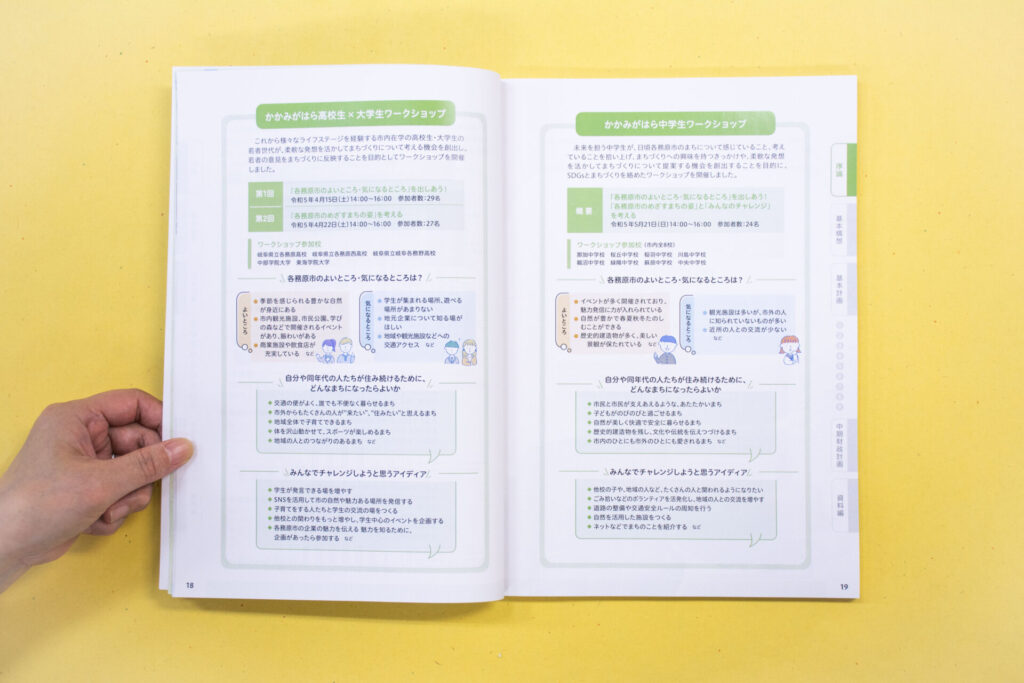 かかみがはら高校生×大学生ワークショップ
これから様々なライフステージを経験する市内在学の高校生・大学生の
若者世代が、柔軟な発想を活かしてまちづくりについて考える機会を創出し、
若者の意見をまちづくりに反映することを目的としてワークショップを開催
しました。
第1回
「各務原市のよいところ・気になるところ」を出しあう!
令和5年4月15日(土)14:00~16:00 参加者数:29名
第2回
「各務原市のめざすまちの姿」を考える
令和5年4月22日(土)14:00~16:00 参加者数:27名
ワークショップ参加校
岐阜県立各務原高校 岐阜県立各務原西高校 岐阜県立岐阜各務野高校
中部学院大学 東海学院大学
各務原市のよいところ・気になるところは?
よいところ
季節を感じられる豊かな自然
が身近にある
市内観光施設、市民公園、学び
の森などで開催されるイベント
があり、賑わいがある
商業施設や飲食店が
充実している など
気になるところ
学生が集まれる場所、遊べる
場所があまりない
地元企業について知る場が
ほしい
地域や観光施設などへの
交通アクセス など
自分や同年代の人たちが住み続けるために、
どんなまちになったらよいか
交通の便がよく、誰でも不便なく暮らせるまち
市外からもたくさんの人が“来たい”、“住みたい”と思えるまち
地域全体で子育てできるまち
体を沢山動かせて、スポーツが楽しめるまち
地域の人とのつながりのあるまち など
みんなでチャレンジしようと思うアイディア
学生が発言できる場を増やす
SNSを活用して市の自然や魅力ある場所を発信する
子育てをする人たちと学生の交流の場をつくる
他校との関わりをもっと増やし、学生中心のイベントを企画する
各務原市の企業の魅力を伝える 魅力を知るために、
企画があったら参加する など
18
かかみがはら中学生ワークショップ
未来を担う中学生が、日頃各務原市のまちについて感じていること、考え
ていることを拾い上げ、まちづくりへの興味を持つきっかけや、柔軟な発想
を活かしてまちづくりについて提案する機会を創出することを目的に、
SDGsとまちづくりを絡めたワークショップを開催しました。
概要
「各務原市のよいところ・気になるところ」を出しあう!
「各務原市のめざすまちの姿」と「みんなのチャレンジ」
を考える
令和5年5月21日(日)14:00~16:00 参加者数:24名
ワークショップ参加校(市内全8校)
那加中学校 桜丘中学校 稲羽中学校 川島中学校
鵜沼中学校 緑陽中学校 蘇原中学校 中央中学校
各務原市のよいところ・気になるところは?
よいところ
イベントが多く開催されており、
魅力発信に力が入れられている
自然が豊かで春夏秋冬たのし
むことができる
歴史的建造物が多く、美しい
景観が保たれている など
気になるところ
観光施設は多いが、市外の人
に知られていないものが多い
近所の人との交流が少ない
など
自分や同年代の人たちが住み続けるために、
どんなまちになったらよいか
市民と市民が支えあえるような、あたたかいまち
子どもがのびのびと過ごせるまち
自然が美しく快適で安全に暮らせるまち
歴史的建造物を残し、文化や伝統を伝えつづけるまち
市内のひとにも市外のひとにも愛されるまち など
みんなでチャレンジしようと思うアイディア
他校の子や、地域の人など、たくさんの人と関われるようになりたい
ごみ拾いなどのボランティアを活発化し、地域の人との交流を増やす
道路の整備や交通安全ルールの周知を行う
自然を活用した施設をつくる
ネットなどでまちのことを紹介する など
19
序論
基本構想
基本計画
中期財政計画
資料編